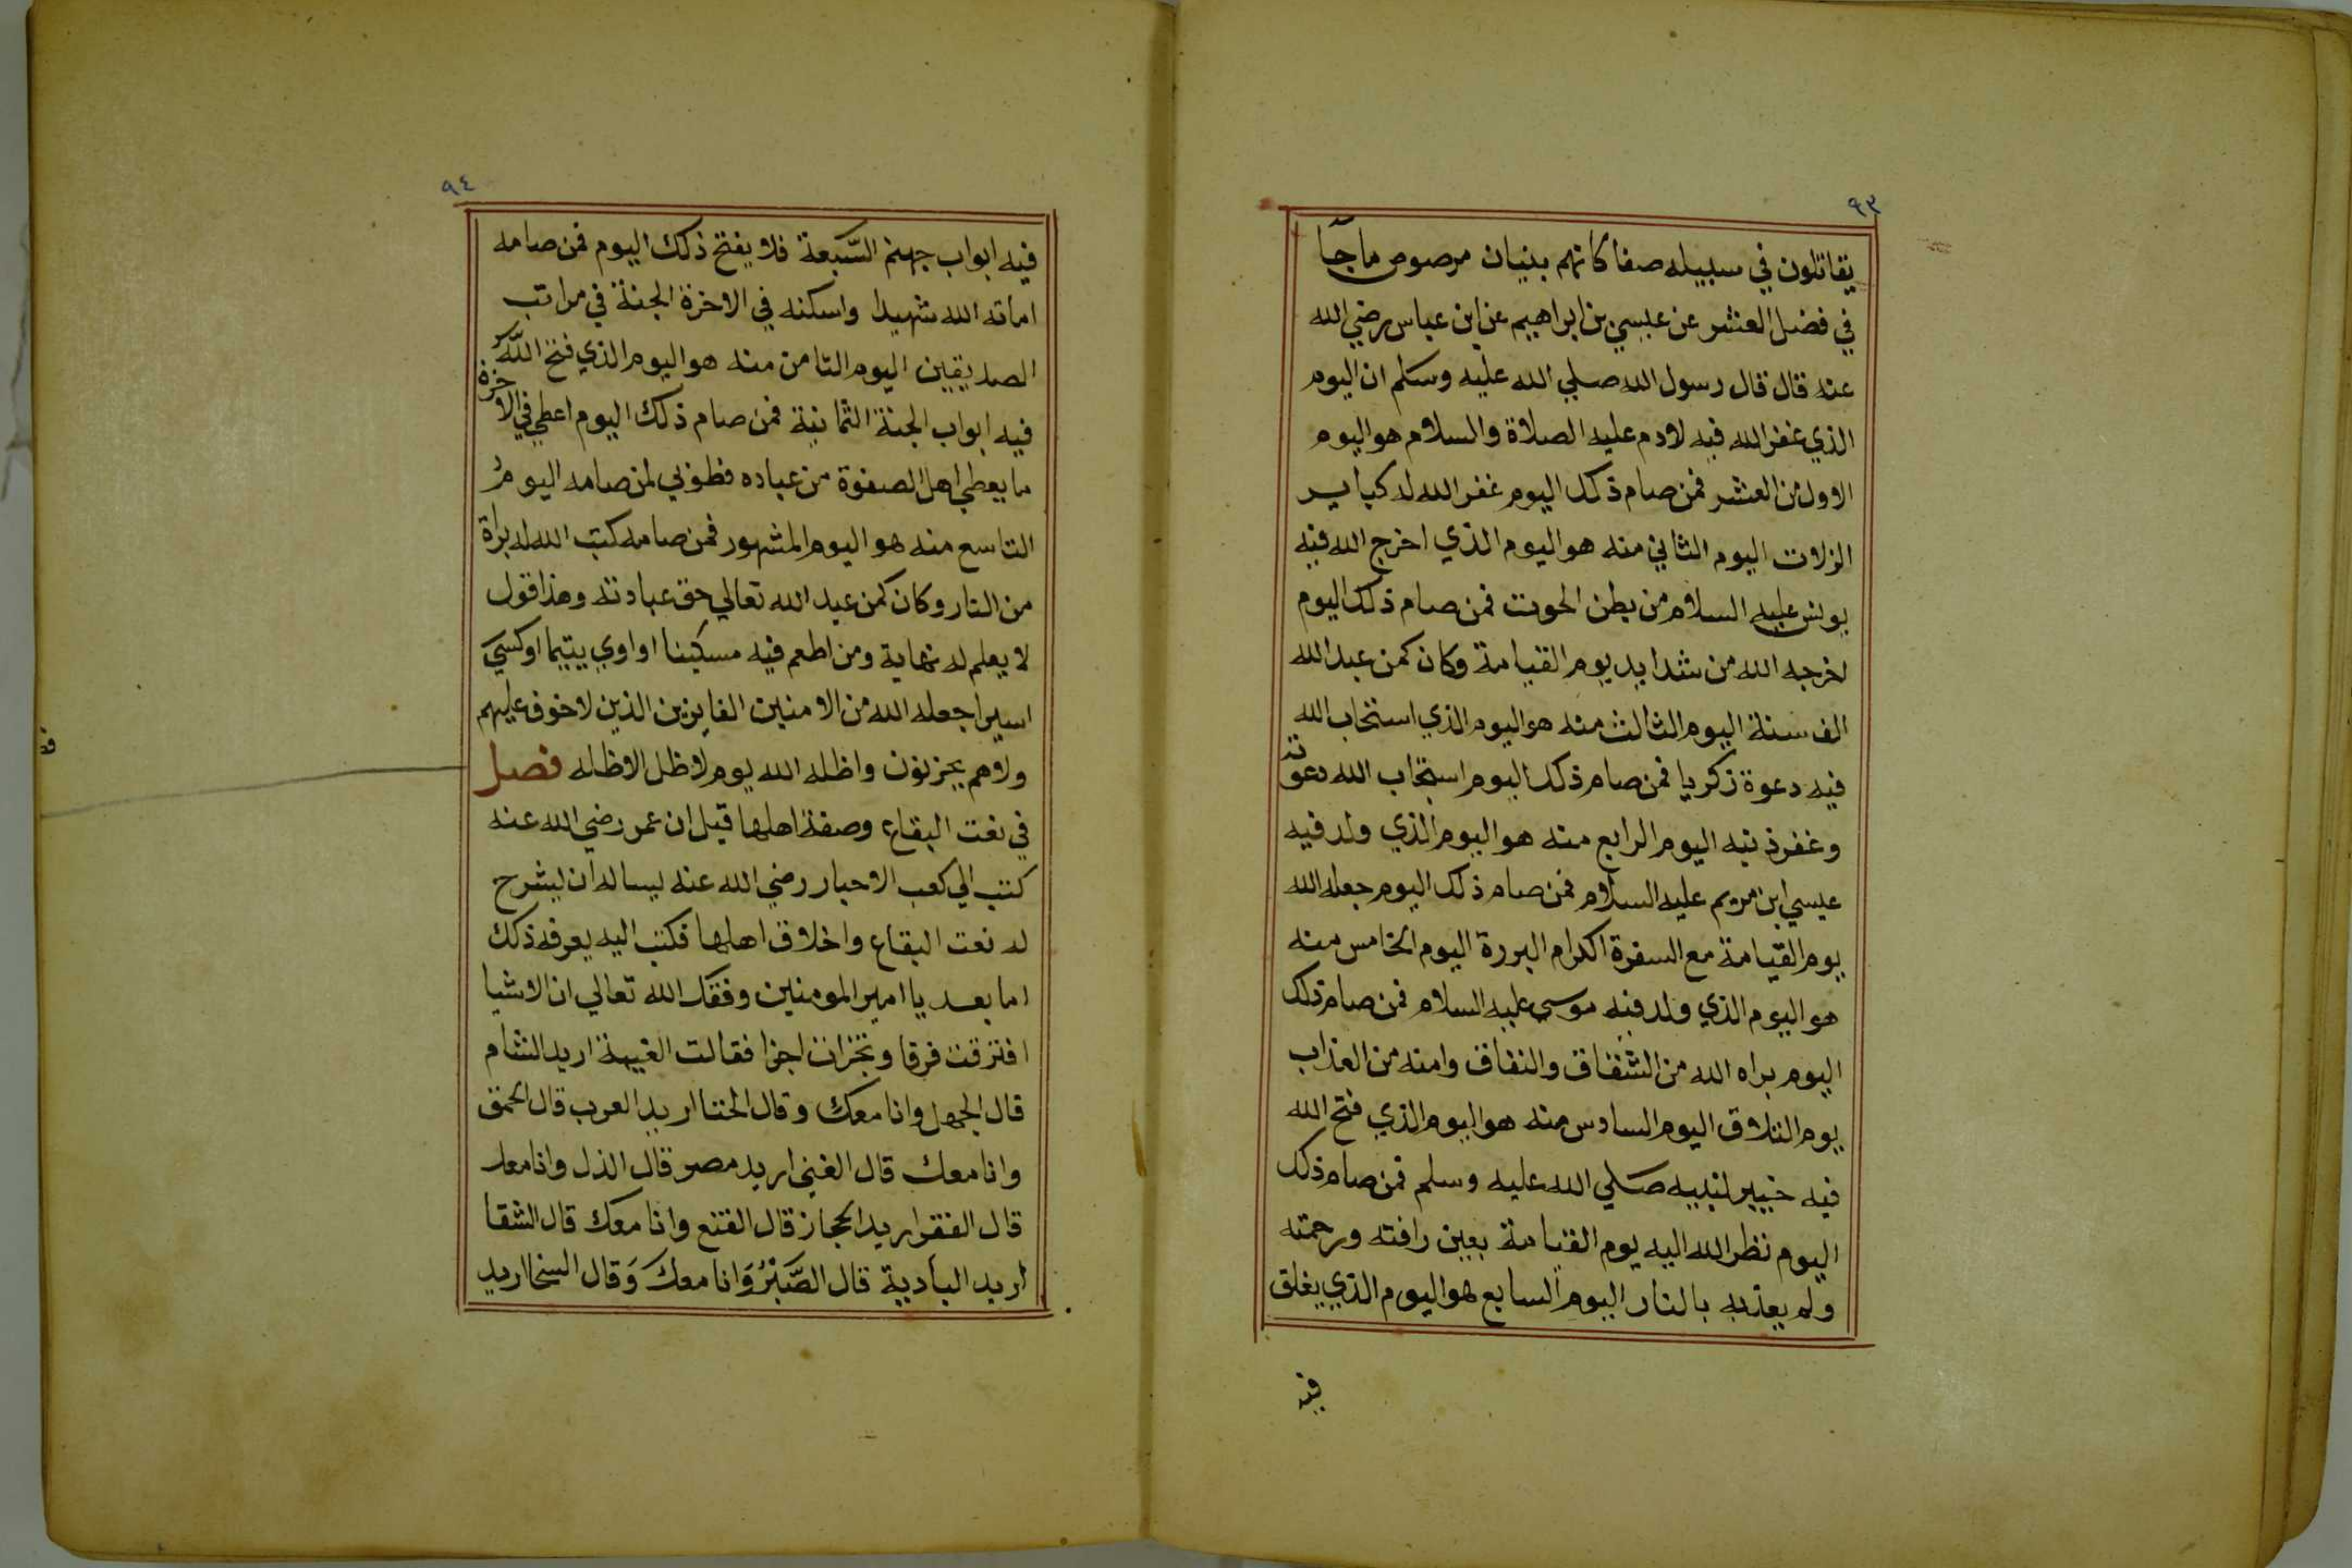 ٩٣
يقاتلون في سبيله صفا كانهم بنيان مرصوص ما جآ
في فضل العشر عن عيسي بن ابراهيم عن ابن عباس رضي الله
عنه قال قال رسول الله صلي الله عليه وسلم ان اليوم
الذي غفر الله فيه لادم عليه الصلاة والسلام هو اليوم
الاول من العشر فمن صام ذلك اليوم غفر الله له كباير
الزلات اليوم الثاني منه هو اليوم الذي اخرج الله فيه
يونس عليه السلام من بطن الحوت فمن صام ذلك اليوم
اخرجه الله من شدايد يوم القيامة وكان كمن عبد الله
الف سنة اليوم الثالث منه هو اليوم الذي استجاب الله
فيه دعوة زكريا فمن صام ذلك اليوم استجاب الله دعوته
وغفر ذنبه اليوم الرابع منه هو اليوم الذي ولد فيه
عيسي ابن مريم عليه السلام فمن صام ذلك اليوم جعله الله
يوم القيامة مع السفرة الكرام البررة اليوم الخامس منه
هو اليوم الذي ولد فيه موسي عليه السلام فمن صام ذلك
اليوم براه الله من الشقاق والنفاق وامنه من العذاب
يوم التلاق اليوم السادس منه هو اليوم الذي فتح الله
فيه خيبر لنبيه صلي الله عليه وسلم فمن صام ذلك
اليوم نظر الله اليه يوم القيامة بعين رافته ورحمته
ولم يعذبه بالنار اليوم السابع هو اليوم الذي يغلق
فيه
٩٤
فيه ابواب جهنم السبعة فلا يفتح ذلك اليوم فمن صامه
اماته الله شهيدا واسكنه في الاخرة الجنة في مراتب
الصديقين اليوم الثامن منه هو اليوم الذي فتح الله
فيه ابواب الجنة الثمانية فمن صام ذلك اليوم اعطي في الاخرة
ما يعطي اهل الصفوة من عباده فطوبي لمن صامه اليوم
التاسع منه هو اليوم المشهور فمن صامه كتب الله له براة
من النار وكان كمن عبد الله تعالي حق عبادته وهذا قول
لا يعلم له نهاية ومن اطعم فيه مسكينا او اوي يتيما او كسي
اسيرا جعله الله من الامنين الفايزين الذين لا خوف عليهم
ولا هم يحزنون واظله الله يوم لا ظل الا ظله فصل
في نعت البقاع وصفة اهلها قيل ان عمر رضي الله عنه
كتب الي كعب الاحبار رضي الله عنه يساله ان يشرح
له نعت البقاع واخلاق اهلها فكتب اليه يعرفه ذلك
اما بعد يا امير المومنين وفقك الله تعالي ان الاشيا
افترقت فرقا وتجزات اجزا فقالت الغيبة اريد الشام
قال الجهل وانا معك وقال الخنا اريد العرب قال الحمق
وانا معك قال الغني اريد مصر قال الذل وانا معك
قال الفقر اريد الحجاز قال القنع وانا معك قال الشقا
اريد البادية قال الصبر وانا معك وقال السخا اريد